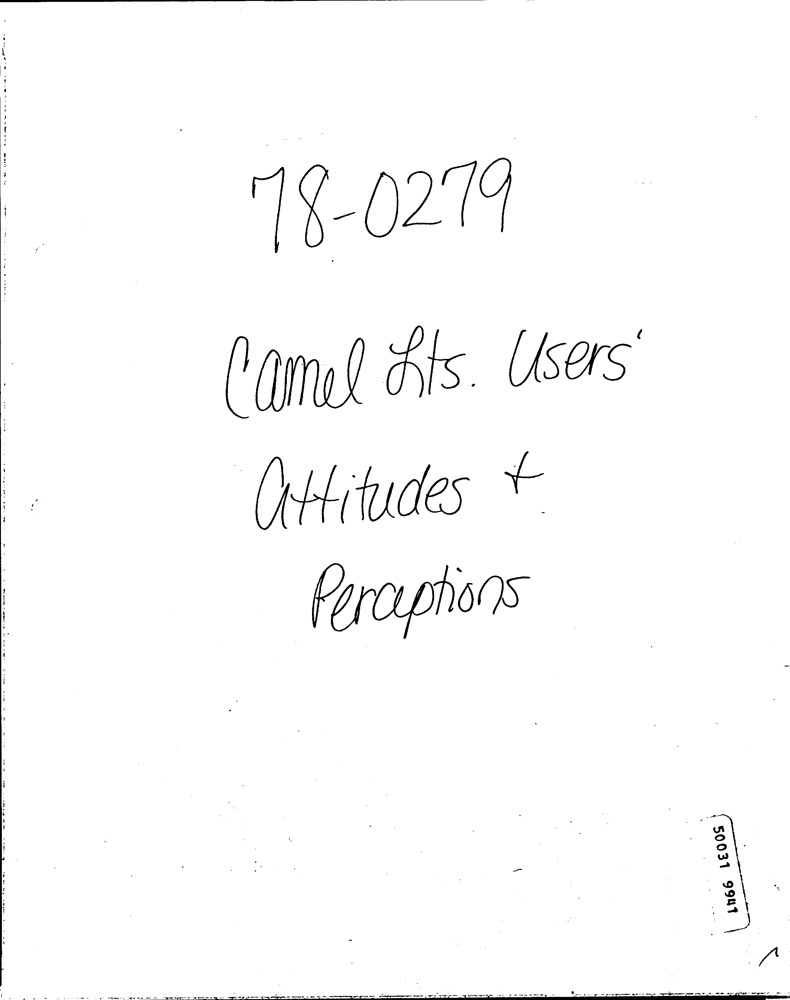 78-0279
Camel Lts. Users'
Attitudes +
Perceptions
50031 9941